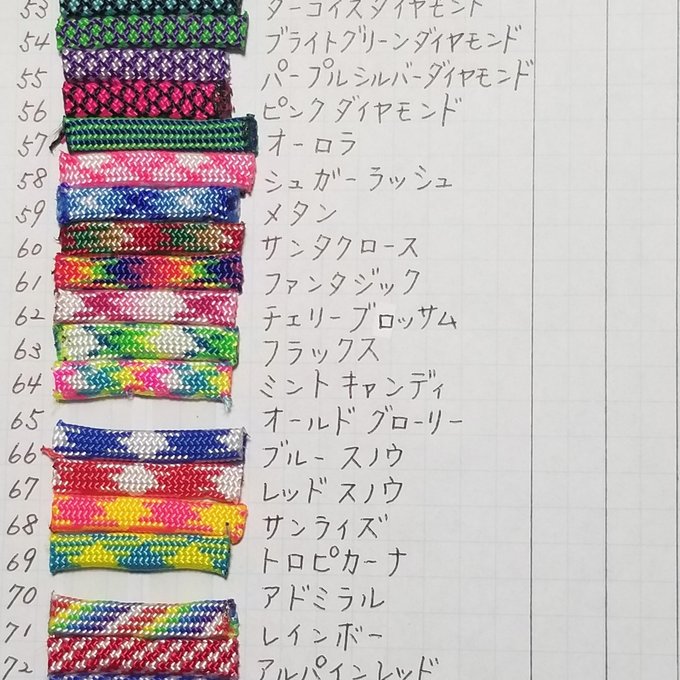 53 ターコイズダイヤモンド
54 ブライトグリーンダイヤモンド
55 パープルシルバーダイヤモンド
56 ピンクダイヤモンド
57 オーロラ
58 シュガーラッシュ
59 メタン
60 サンタクロース
61 ファンタジック
62 チェリーブロッサム
63 フラックス
64 ミントキャンディ
65 オールドグローリー
66 ブルースノウ
67 レッドスノウ
68 サンライズ
69 トロピカーナ
70 アドミラル
71 レインボー
72 アルパインレッド